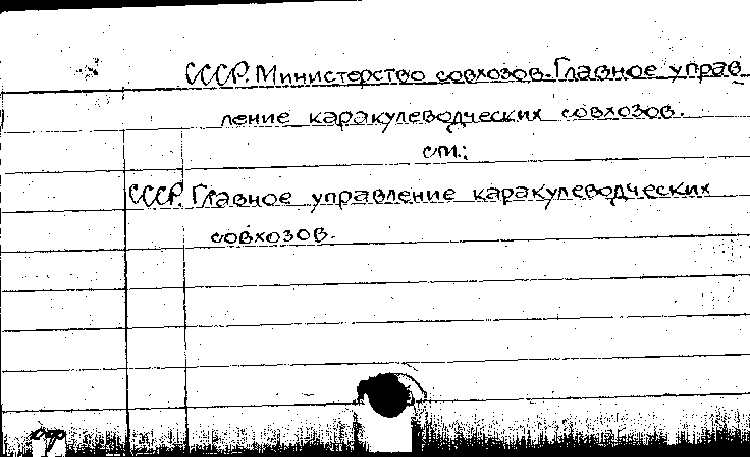 СССР. Министерство совхозов. Главное управ
ление каракулеводческих совхозов.
см.:
СССР. Главное управление каракулеводческих
совхозов.